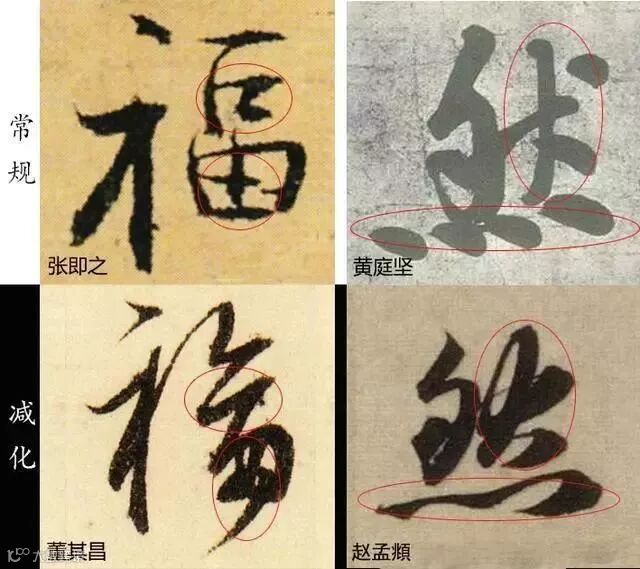 常规
福
然
张即之
黄庭坚
减化
福
然
董其昌
赵孟頫